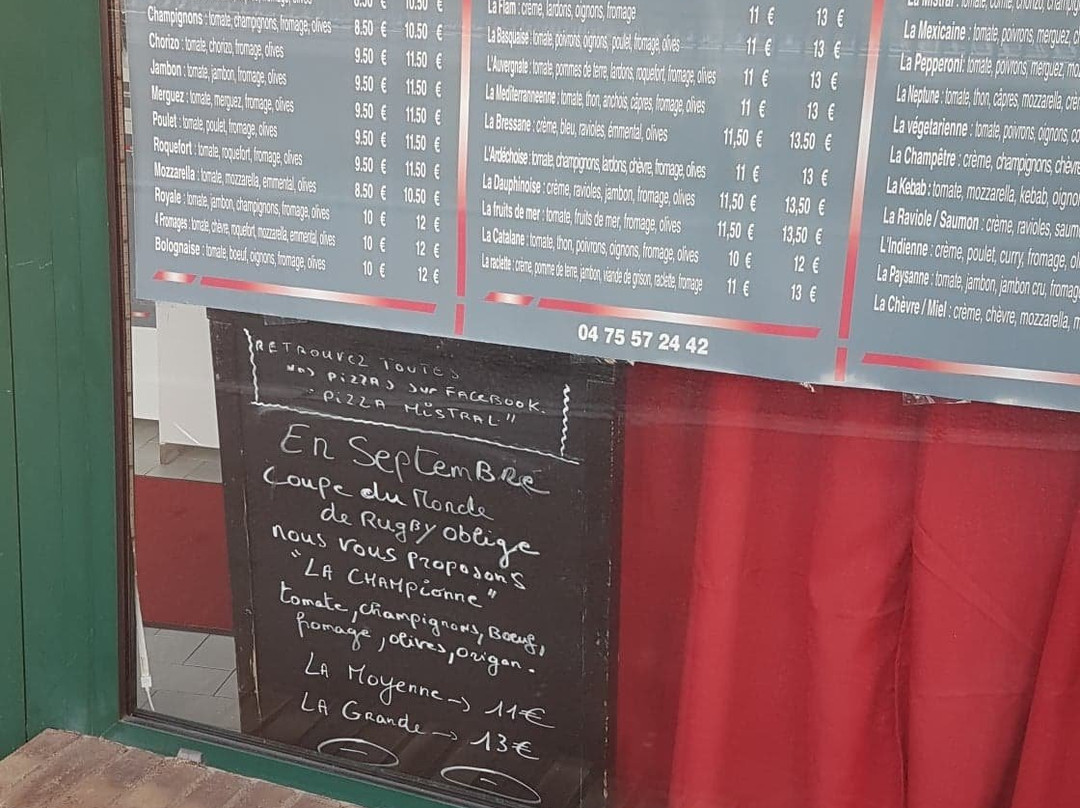 8.50 € 10.50 €
Champignons : tomate, champignons, fromage, olives 8.50 € 10.50 €
Chorizo : tomate, chorizo, fromage, olives 9.50 € 11.50 €
Jambon : tomate, jambon, fromage, olives 9.50 € 11.50 €
Merguez : tomate, merguez, fromage, olives 9.50 € 11.50 €
Poulet : tomate, poulet, fromage, olives 9.50 € 11.50 €
Roquefort : tomate, roquefort, fromage, olives 9.50 € 11.50 €
Mozzarella : tomate, mozzarella, emmental, olives 8.50 € 10.50 €
Royale : tomate, jambon, champignons, fromage, olives 10 € 12 €
4 Fromages : tomate, chèvre, roquefort, mozzarella, emmental, olives 10 € 12 €
Bolognaise : tomate, boeuf, oignons, fromage, olives 10 € 12 €
La Flam : crème, lardons, oignons, fromage 11 € 13 €
La Basquaise : tomate, poivrons, oignons, poulet, fromage, olives 11 € 13 €
L'Auvergnate : tomate, pommes de terre, lardons, roquefort, fromage, olives 11 € 13 €
La Mediterranneenne : tomate, thon, anchois, câpres, fromage, olives 11 € 13 €
La Bressane : crème, bleu, ravioles, émmental, olives 11,50 € 13.50 €
L'Ardéchoise : tomate, champignons, lardons, chèvre, fromage, olives 11 € 13 €
La Dauphinoise : crème, ravioles, jambon, fromage, olives 11,50 € 13,50 €
La fruits de mer : tomate, fruits de mer, fromage, olives 11,50 € 13,50 €
La Catalane : tomate, thon, poivrons, oignons, fromage, olives 10 € 12 €
La raclette : crème, pomme de terre, jambon, viande de grison, raclette, fromage 11 € 13 €
La Mistral : tomate,
La Mexicaine : tomate, poivrons, merguez,
La Pepperoni : tomate, poivrons, merguez,
La Neptune : tomate, thon, câpres, mozzarella,
La végetarienne : tomate, poivrons, oignons,
La Champêtre : crème, champignons,
La Kebab : tomate, mozzarella, kebab,
La Raviole / Saumon : crème, ravioles,
L'Indienne : crème, poulet, curry, fromage,
La Paysanne : tomate, jambon, jambon cru,
La Chèvre / Miel : crème, chèvre, mozzarella,
04 75 57 24 42
RETROUVEZ TOUTES
NOS PIZZAS SUR FACEBOOK.
"PIZZA MISTRAL"
En Septembre
Coupe du Monde
de Rugby oblige
nous vous proposons
"LA CHAMPionne"
tomate, champignons, Boeuf,
fromage, olives, origan.
LA Moyenne -> 11€
LA Grande -> 13€